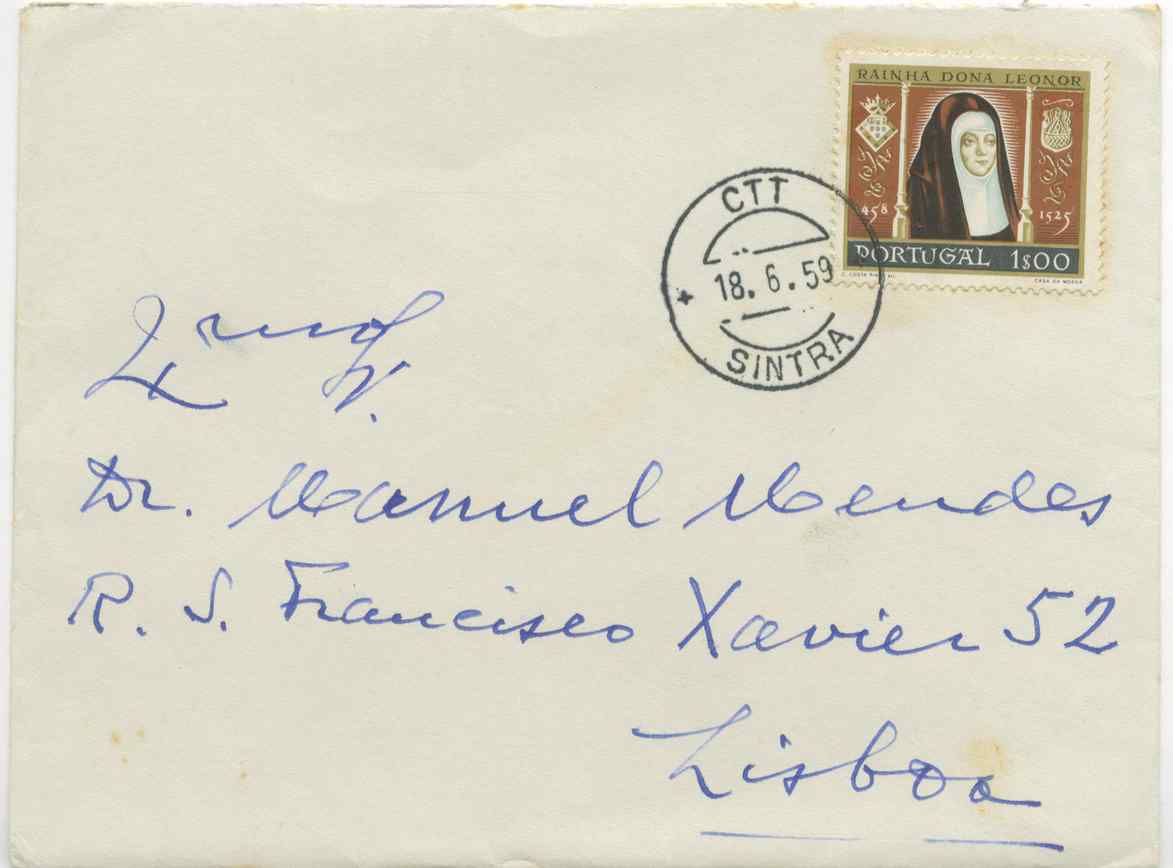 RAINHA DONA LEONOR
1458 1525
PORTUGAL 1$00
CASA DA MOEDA
CTT
18.6.59
SINTRA
Dr. Manuel Mendes
R. S. Francisco Xavier 52
Lisboa